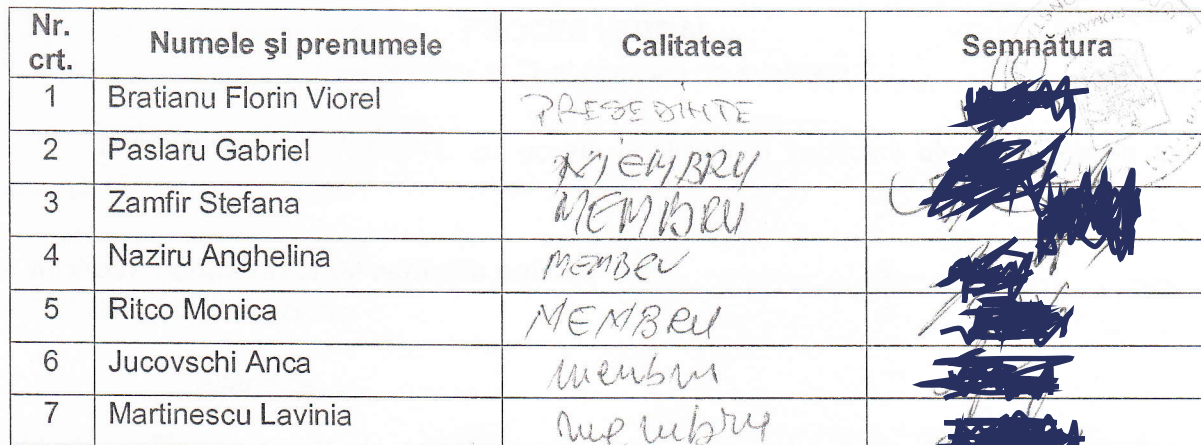 Nr. crt. Numele şi prenumele Calitatea Semnătura
1 Bratianu Florin Viorel PRESEDINTE
2 Paslaru Gabriel MEMBRU
3 Zamfir Stefana MEMBRU
4 Naziru Anghelina MEMBRU
5 Ritco Monica MEMBRU
6 Jucovschi Anca membru
7 Martinescu Lavinia membru